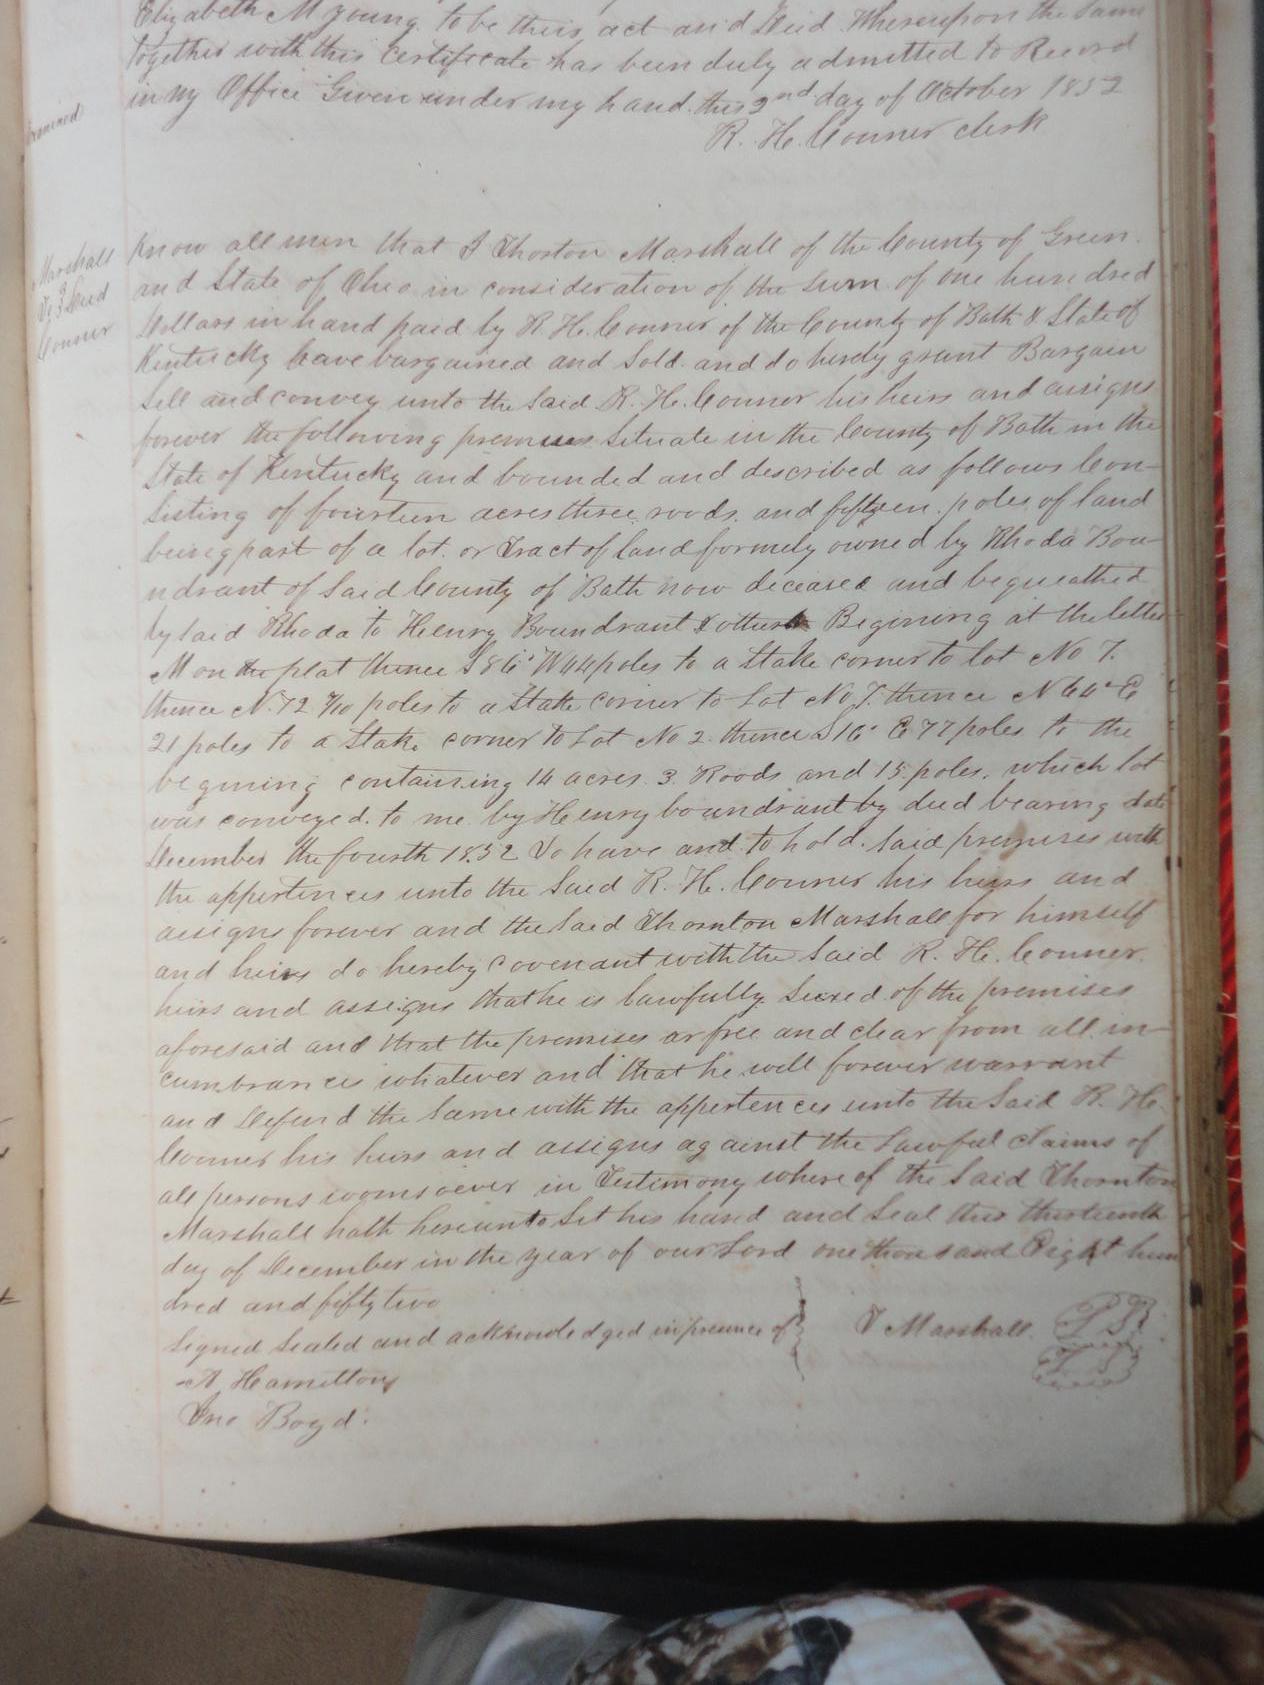 Elizabeth M Young to be their act and Deed Whereupon the Same
together with this certificate has been duly admitted to Record
in my Office Given under my hand this 2nd day of October 1852
R. H. Conner clerk
Examined
Marshall
To } Deed
Conner
Know all men that I Thorton Marshall of the County of Green
and State of Ohio in consideration of the Sum of one hundred
Dollars in hand paid by R. H. Conner of the County of Bath & State of
Kentucky have bargained and Sold and do herely grant Bargain
Sell and convey unto the Said R. H. Conner his heirs and assigns
forever the following premises Situate in the County of Bath in the
State of Kentucky and bounded and described as follows Con-
sisting of fourteen acres three roods and fifteen poles of land
being part of a lot or Tract of land formely owned by Rhoda Bou-
ndrant of Said County of Bath now deceased and bequeathed
by Said Rhoda to Henry Boundrant & others Begining at the letter
M on the plat thence S 86° W 44 poles to a Stake corner to lot No 7.
thence N. 72 7/10 poles to a Stake corner to Lot No 7. thence N 64° E
21 poles to a Stake corner to Lot No 2 thence S 16° E 77 poles to the
begining containing 14 acres 3 Roods and 15 poles, which lot
was conveyed to me by Henry boundrant by deed bearing date
December the fourth 1852 To have and to hold Said premises with
the appertences unto the Said R. H. Conner his heirs and
assigns forever and the Said Thornton Marshall for himself
and heirs do hereby covenant with the Said R. H. Conner
heirs and assigns that he is lawfully Seized of the premises
aforesaid and that the premises ar free and clear from all in-
cumbrances whatever and that he will forever warrant
and Defend the Same with the appertences unto the Said R. H.
Conner his heirs and assigns against the Lawful claims of
all persons womsoever in Testimony where of the Said Thornton
Marshall hath hereunto Set his hand and Seal this thirteenth
day of December in the year of our Lord one thousand Eight hun
dred and fifty two
Signed Sealed and acknowledged in presence of } T Marshall
A Hamilton
Jno Boyd